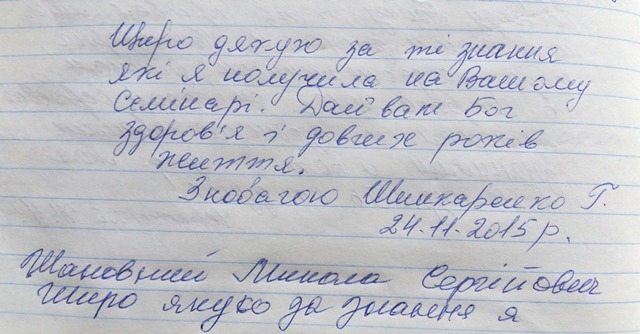 Щиро дякую за ті знання
які я получила на Вашому
Семінарі. Дай вам Бог
здоров'я і довгих років
життя.
З повагою Шинкаренко Г.
24.11.2015р.
Шановний Микола Сергійович
Щиро якую за знання я